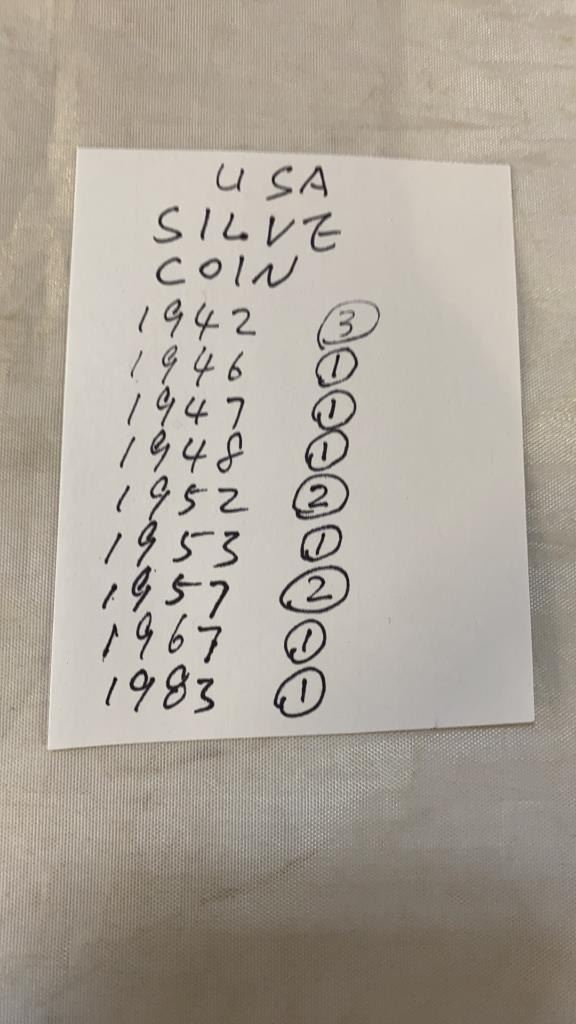 USA
SILVE
COIN
1942 3
1946 1
1947 1
1948 1
1952 2
1953 1
1957 2
1967 1
1983 1